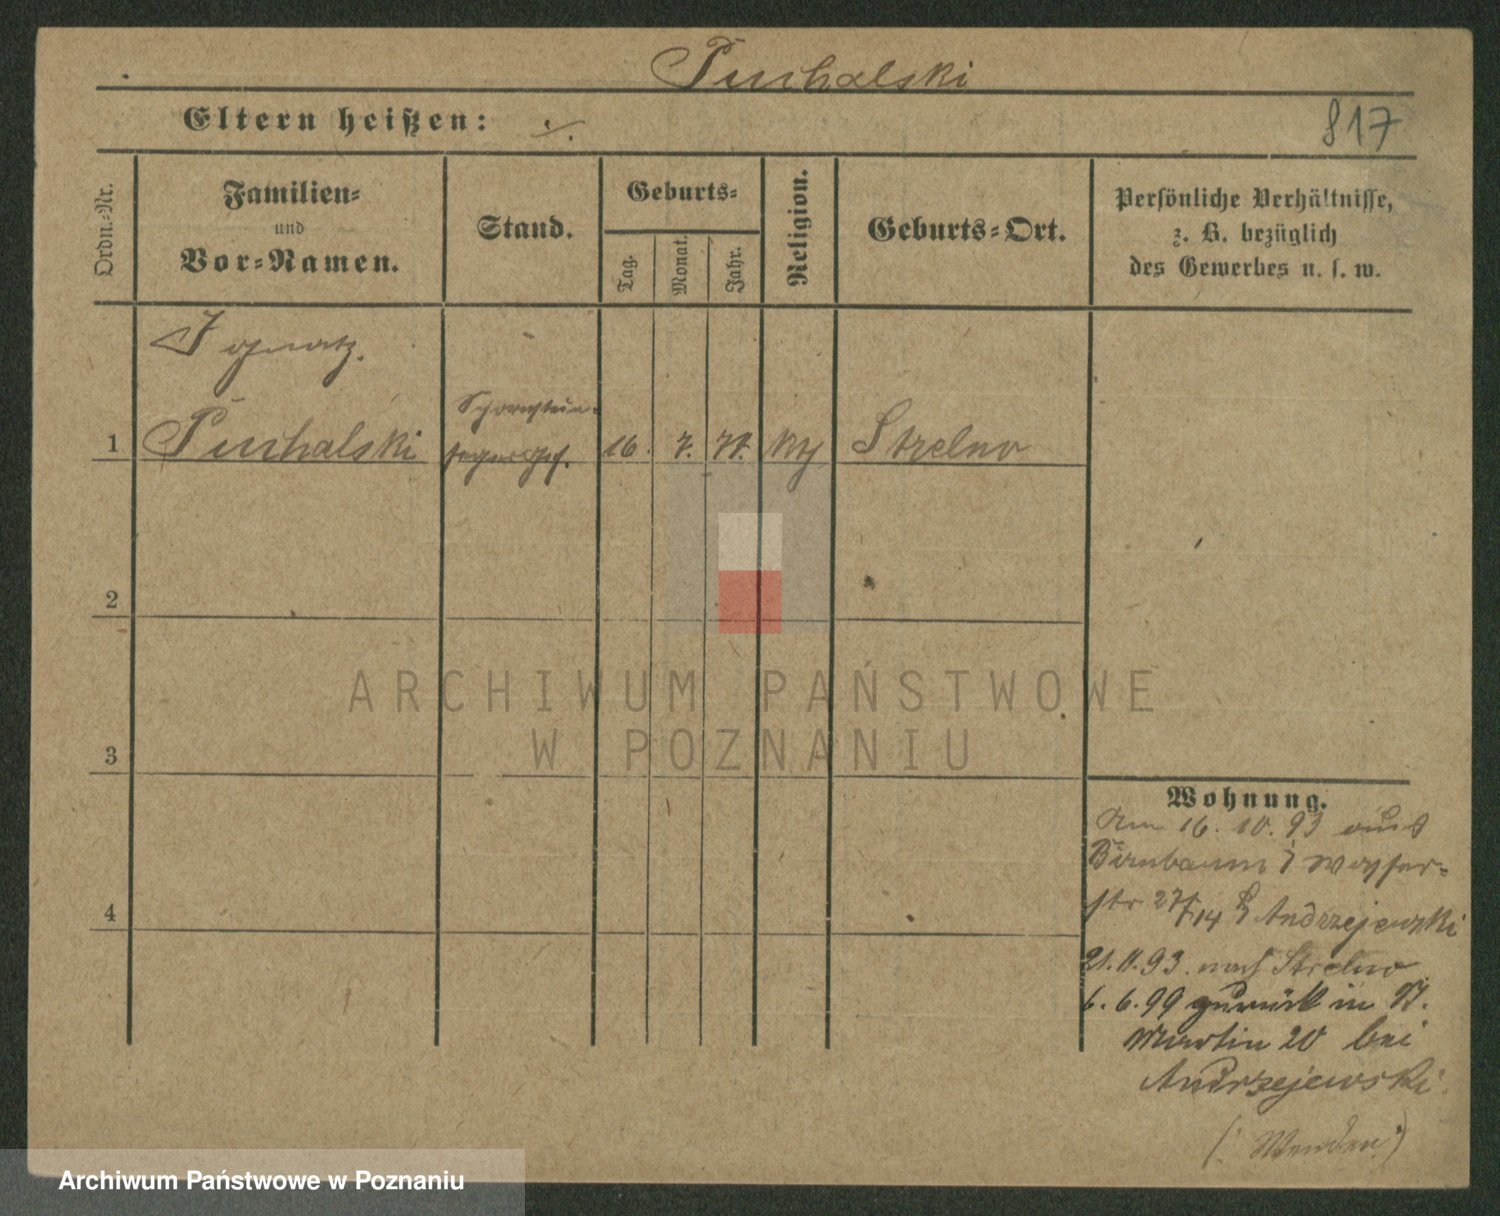 Puchalski
Eltern heißen: ./.
817
Ordn.-Nr.
Familien-
und
Vor-Namen.
Stand.
Geburts-
Tag.
Monat.
Jahr.
Religion.
Geburts-Ort.
Persönliche Verhältnisse,
z. B. bezüglich
des Gewerbes u. s. w.
Ignatz.
1 Puchalski
Schornstein-
feger
16. 7. 77. kth Strelno
2
3
4
ARCHIWUM PAŃSTWOWE
W POZNANIU
Wohnung.
Am 16. 10. 93 aus
Birnbaum
str 27 Andrzejewski
21.11.93. nach Strelno
6. 6. 99 zurück in St.
Martin 20 bei
Andrzejewski
(: Wenden :)
Archiwum Państwowe w Poznaniu